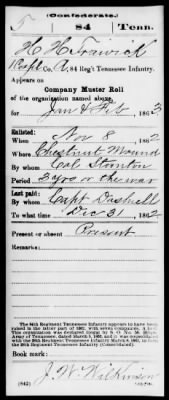 (Confederate.)
T 84 Tenn.
H H Trawick
Capt Co. A, 84 Reg't Tennessee Infantry.
Appears on
Company Muster Roll
of the organization named above,
for Jan & Feb, 1863
Enlisted:
When Nov 8, 1862
Where Chestnut Mound
By whom Col Stanton
Period 3 yrs or the war
Last paid:
By whom Capt Dashiell
To what time Dec 31, 1862
Present or absent Present
Remarks:
Book mark:
(642) J. W. Wilkinson